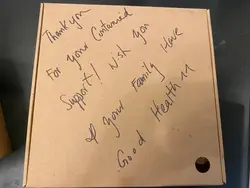 Thank you
For your Continued
Support! Wish you
& your Family Have
Good Health